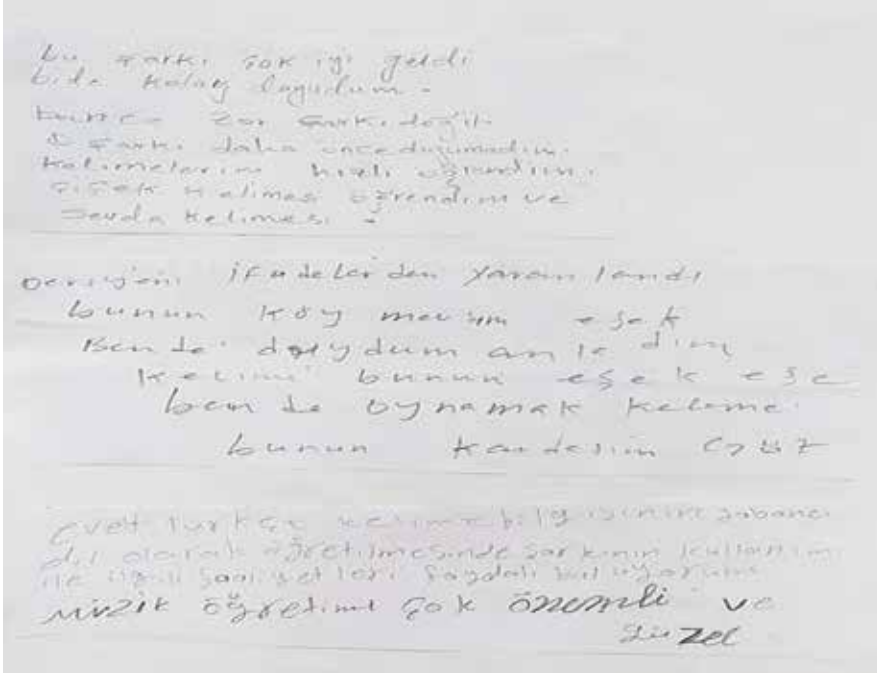 bu şarkı çok iyi geldi
bide kolay
zor şarkı değil.
şarkı daha önce duyumadım.
Kelimelerim hızlı öğrendim.
çiçek kelimesi öğrendim ve
Sevda kelimesi.
ifadelerden yararlandı
bunun köy eşek
Bende duydum
bunun eşek eşe
bende oynamak kelime
bunun kardeşim
Evet türkçe kelime bilgisinin yabancı
dil olarak öğretilmesinde şarkının kullanımı
ile ilgili faaliyetleri faydalı buluyorum
müzik öğretimi çok önemli ve
güzel